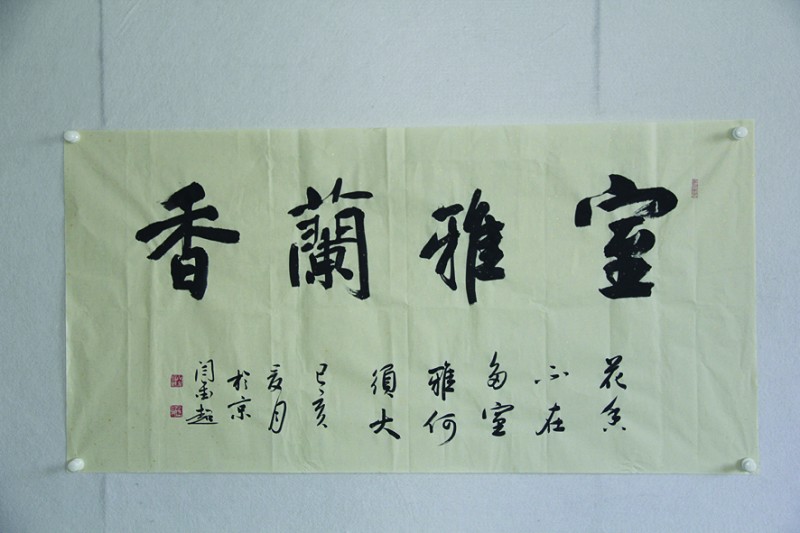 室雅蘭香
花香
不在
多室
雅何
須大
己亥
夏月
於京
闫超